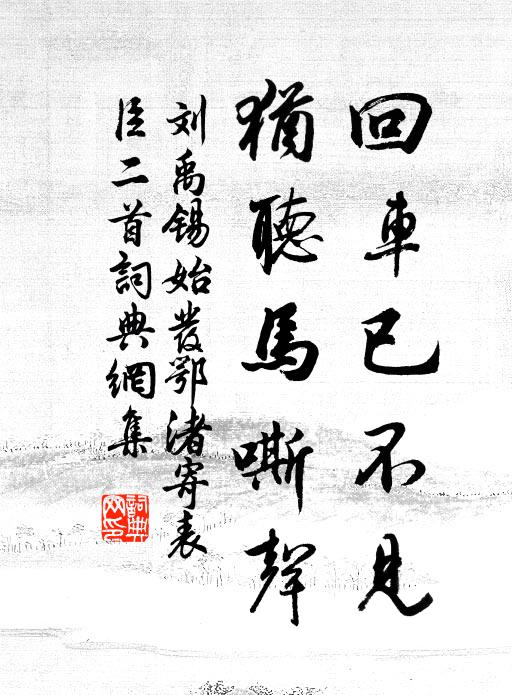 回車已不見
猶聽馬嘶聲
刘禹锡始發鄂渚寄表
臣二首詞典網集
詞典
网印